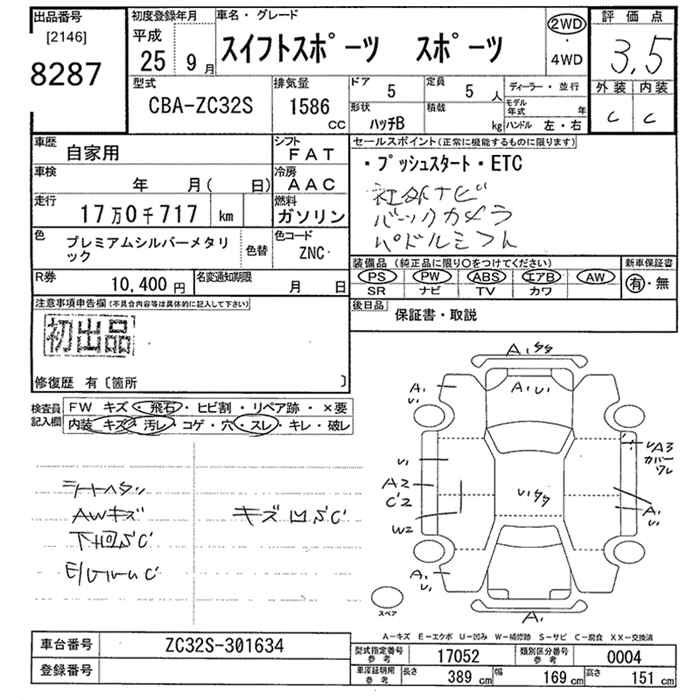 出品番号
[2146]
8287
初度登録年月
平成
25 9月
車名・グレード
スイフトスポーツ スポーツ
2WD
・
4WD
評価点
3,5
外装 内装
C C
型式
CBA-ZC32S
排気量
1586
CC
ドア
5
定員
5 人
形状
ハッチB
積載
kg
ディーラー・並行
モデル年式 年
ハンドル 左・右
車歴
自家用
シフト
FAT
車検
年 月( 日)
冷房
AAC
走行
17万0千717 km
燃料
ガソリン
色
プレミアムシルバーメタリ
ック
色替
色コード
ZNC
R券
10,400円
名変通知期限
月 日
セールスポイント(正常に機能するものに限ります)
・プッシュスタート・ETC
社外ナビ
バックカメラ
パドルシフト
装備品(純正品に限り○をつけてください)
PS PW ABS エアB AW
SR ナビ TV カワ
新車保証書
有・無
後日品
保証書・取説
注意事項申告欄(不具合内容等は具体的に記入して下さい)
初出品
修復歴 有〔箇所 〕
検査員
記入欄
FW キズ・飛石・ヒビ割・リペア跡・×要
内装 キズ・汚レ・コゲ・穴・スレ・キレ・破レ
シートヘタリ
AWキズ
下回SC
キズ凹SC
A,タタ
A,U,
A,
U,
U,
A2
C2
W2
Uタタ
UA3
カバー
ワレ
A,
U,
A,
U,
A,
スペア
A-キズ E-エクボ U-凹み W-補修跡 S-サビ C-腐食 XX-交換済
車台番号
ZC32S-301634
登録番号
型式指定番号
参考
17052
類別区分番号
参考
0004
車庫証明用
参考
長さ 389 cm 幅 169 cm 高さ 151 cm